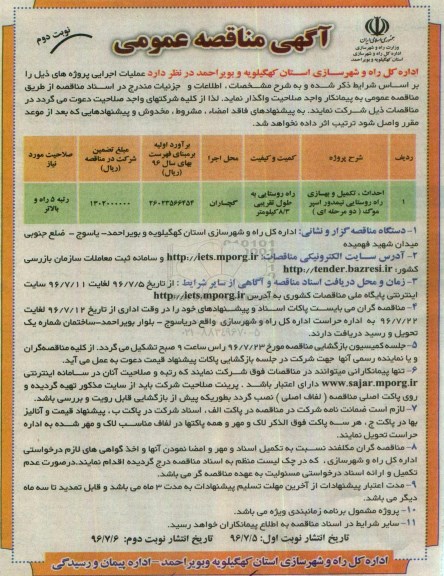 جمهوری اسلامی ایران
وزارت راه و شهرسازی
اداره کل راه و شهرسازی
استان کهگیلویه و بویراحمد
آگهی مناقصه عمومی
نوبت دوم
اداره کل راه و شهرسازی استان کهگیلویه و بویراحمد در نظر دارد عملیات اجرایی پروژه های ذیل را
بر اساس شرایط ذکر شده و به شرح مشخصات، اطلاعات و جزئیات مندرج در اسناد مناقصه از طریق
مناقصه عمومی به پیمانکار واجد صلاحیت واگذار نماید. لذا از کلیه شرکتهای واجد صلاحیت دعوت می گردد در
مناقصات ذیل شرکت نمایند. به پیشنهادهای فاقد امضاء، مشروط، مخدوش و پیشنهادهایی که بعد از موعد
مقرر واصل شود ترتیب اثر داده نخواهد شد.
ردیف شرح پروژه کمیت و کیفیت محل اجرا برآورد اولیه برمبنای فهرست بهای سال ۹۶ (ریال) مبلغ تضمین شرکت در مناقصه (ریال) صلاحیت مورد نیاز
۱ احداث، تکمیل و بهسازی راه روستایی تیمدور اسپر موگ ( دو مرحله ای ) راه روستایی به طول تقریبی ۸/۳ کیلومتر گچساران ۲۶۰۲۳۵۶۶۴۵۴ ۱۳۰۲۰۰۰۰۰۰ رتبه ۵ راه و بالاتر
۱- دستگاه مناقصه گزار و نشانی: اداره کل راه و شهرسازی استان کهگیلویه و بویراحمد- یاسوج - ضلع جنوبی
میدان شهید فهمیده
۲- آدرس سایت الکترونیکی مناقصات: http://iets.mporg.ir و سامانه ثبت معاملات سازمان بازرسی
کشور: http://tender.bazresi.ir
۳- زمان و محل دریافت اسناد مناقصه و آگاهی از سایر شرایط : از تاریخ ۹۶/۷/۵ لغایت ۹۶/۷/۱۱ سایت
اینترنتی پایگاه ملی مناقصات کشوری به آدرس http://iets.mporg.ir
۴- مناقصه گران می بایست پاکات اسناد و پیشنهادهای خود را در وقت اداری از تاریخ ۹۶/۷/۱۲ لغایت
۹۶/۷/۲۲ به اداره حراست اداره کل راه و شهرسازی واقع دریاسوج - بلوار بویراحمد-ساختمان شماره یک
تحویل و رسید دریافت دارند.
۵- جلسه کمیسیون بازگشایی مناقصه مورخ ۹۶/۷/۲۳ راس ساعت ۹ صبح تشکیل می گردد. از کلیه مناقصه گران
و یا نماینده رسمی آنها جهت شرکت در جلسه بازگشایی پاکات پیشنهاد قیمت دعوت به عمل می آید.
۶- تنها پیمانکارانی میتوانند در مناقصات فوق شرکت نمایند که رتبه و صلاحیت آنان در سامانه اینترنتی
www.sajar.mporg.ir دارای اعتبار باشد . پرینت صلاحیت شرکت باید از سایت مذکور تهیه گردیده و
روی پاکت اصلی مناقصه ( لفاف اصلی ) نصب گردد بطوریکه پیش از بازگشایی قابل رویت و بررسی باشد.
۷- لازم است ضمانت نامه شرکت در مناقصه در پاکت الف ، اسناد شرکت در پاکت ب ، پیشنهاد قیمت و آنالیز
بها در پاکت ج ، هر سه پاکت فوق الذکر لاک و مهر و همه پاکتها در لفاف مناسب لاک و مهر شده به اداره
حراست تحویل نمایند.
۸- مناقصه گران مکلفند نسبت به تکمیل اسناد و مهر و امضا نمودن آنها و اخذ گواهی های لازم درخواستی
اداره کل راه و شهرسازی ، که در چک لیست منظم به اسناد مناقصه درج گردیده اقدام نمایند.درصورت عدم
تکمیل و ارائه اسناد درخواستی مسئولیت به عهده مناقصه گر می باشد.
۹- مدت اعتبار پیشنهادات از آخرین مهلت تسلیم پیشنهادات به مدت ۳ ماه می باشد و قابل تمدید تا سه ماه
دیگر می باشد.
۱۰- پروژه مشمول برنامه زمانبندی ویژه می باشد.
۱۱- سایر شرایط در اسناد مناقصه به اطلاع پیمانکاران خواهد رسید.
تاریخ انتشار نوبت اول: ۹۶/۷/۵ تاریخ انتشار نوبت دوم: ۹۶/۷/۶
اداره کل راه و شهرسازی استان کهگیلویه وبویراحمد - اداره پیمان و رسیدگی